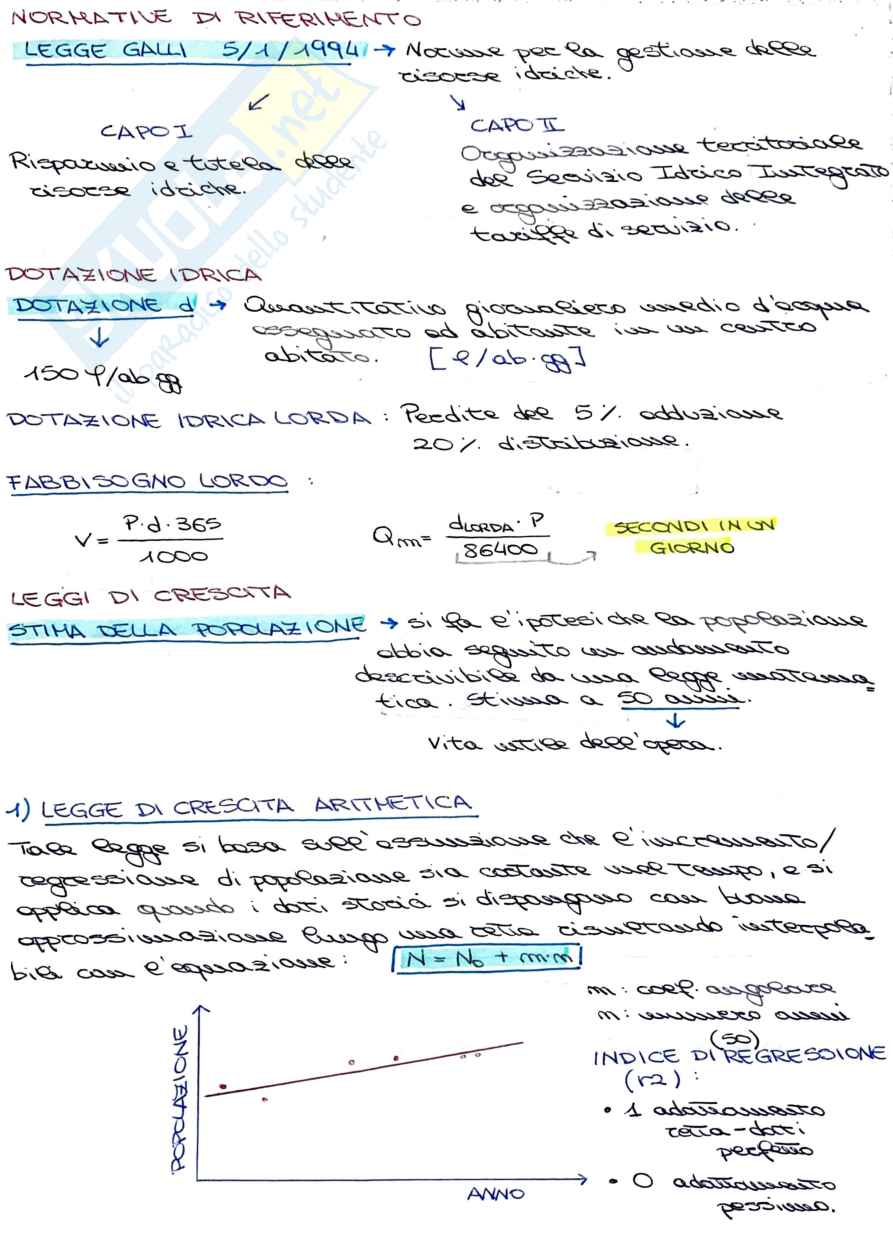 NORMATIVE DI RIFERIMENTO
LEGGE GALLI 5/1/1994 → Norme per la gestione delle
risorse idriche.
CAPO I
Risparmio e tutela delle
risorse idriche.
CAPO II
Organizzazione territoriale
del Servizio Idrico Integrato
e organizzazione delle
tariffe di servizio.
DOTAZIONE IDRICA
DOTAZIONE d → Quantitativo giornaliero medio d'acqua
assegnato ad abitante in un centro
abitato. [l/ab·gg]
↓
150 l/ab gg
DOTAZIONE IDRICA LORDA : Perdite del 5% adduzione
20% distribuzione.
FABBISOGNO LORDO :
V = P·d·365 / 1000
Qm = dLORDA · P / 86400 → SECONDI IN UN
GIORNO
LEGGI DI CRESCITA
STIMA DELLA POPOLAZIONE → si fa l'ipotesi che la popolazione
abbia seguito un andamento
descrivibile da una legge matema
tica. Stima a 50 anni.
↓
Vita utile dell'opera.
1) LEGGE DI CRESCITA ARITMETICA
Tale legge si basa sull'assunzione che l'incremento/
regressione di popolazione sia costante nel tempo, e si
applica quando i dati storici si dispongono con buona
approssimazione lungo una retta risultando interpola
bili con l'equazione: N = N0 + m·n
m: coef. angolare
n: numero anni
(50)
INDICE DI REGRESSIONE
(r2) :
• 1 adattamento
retta-dati
perfetto
• 0 adattamento
pessimo.
POPOLAZIONE
ANNO
SKUOLA.net
il paradiso dello studente